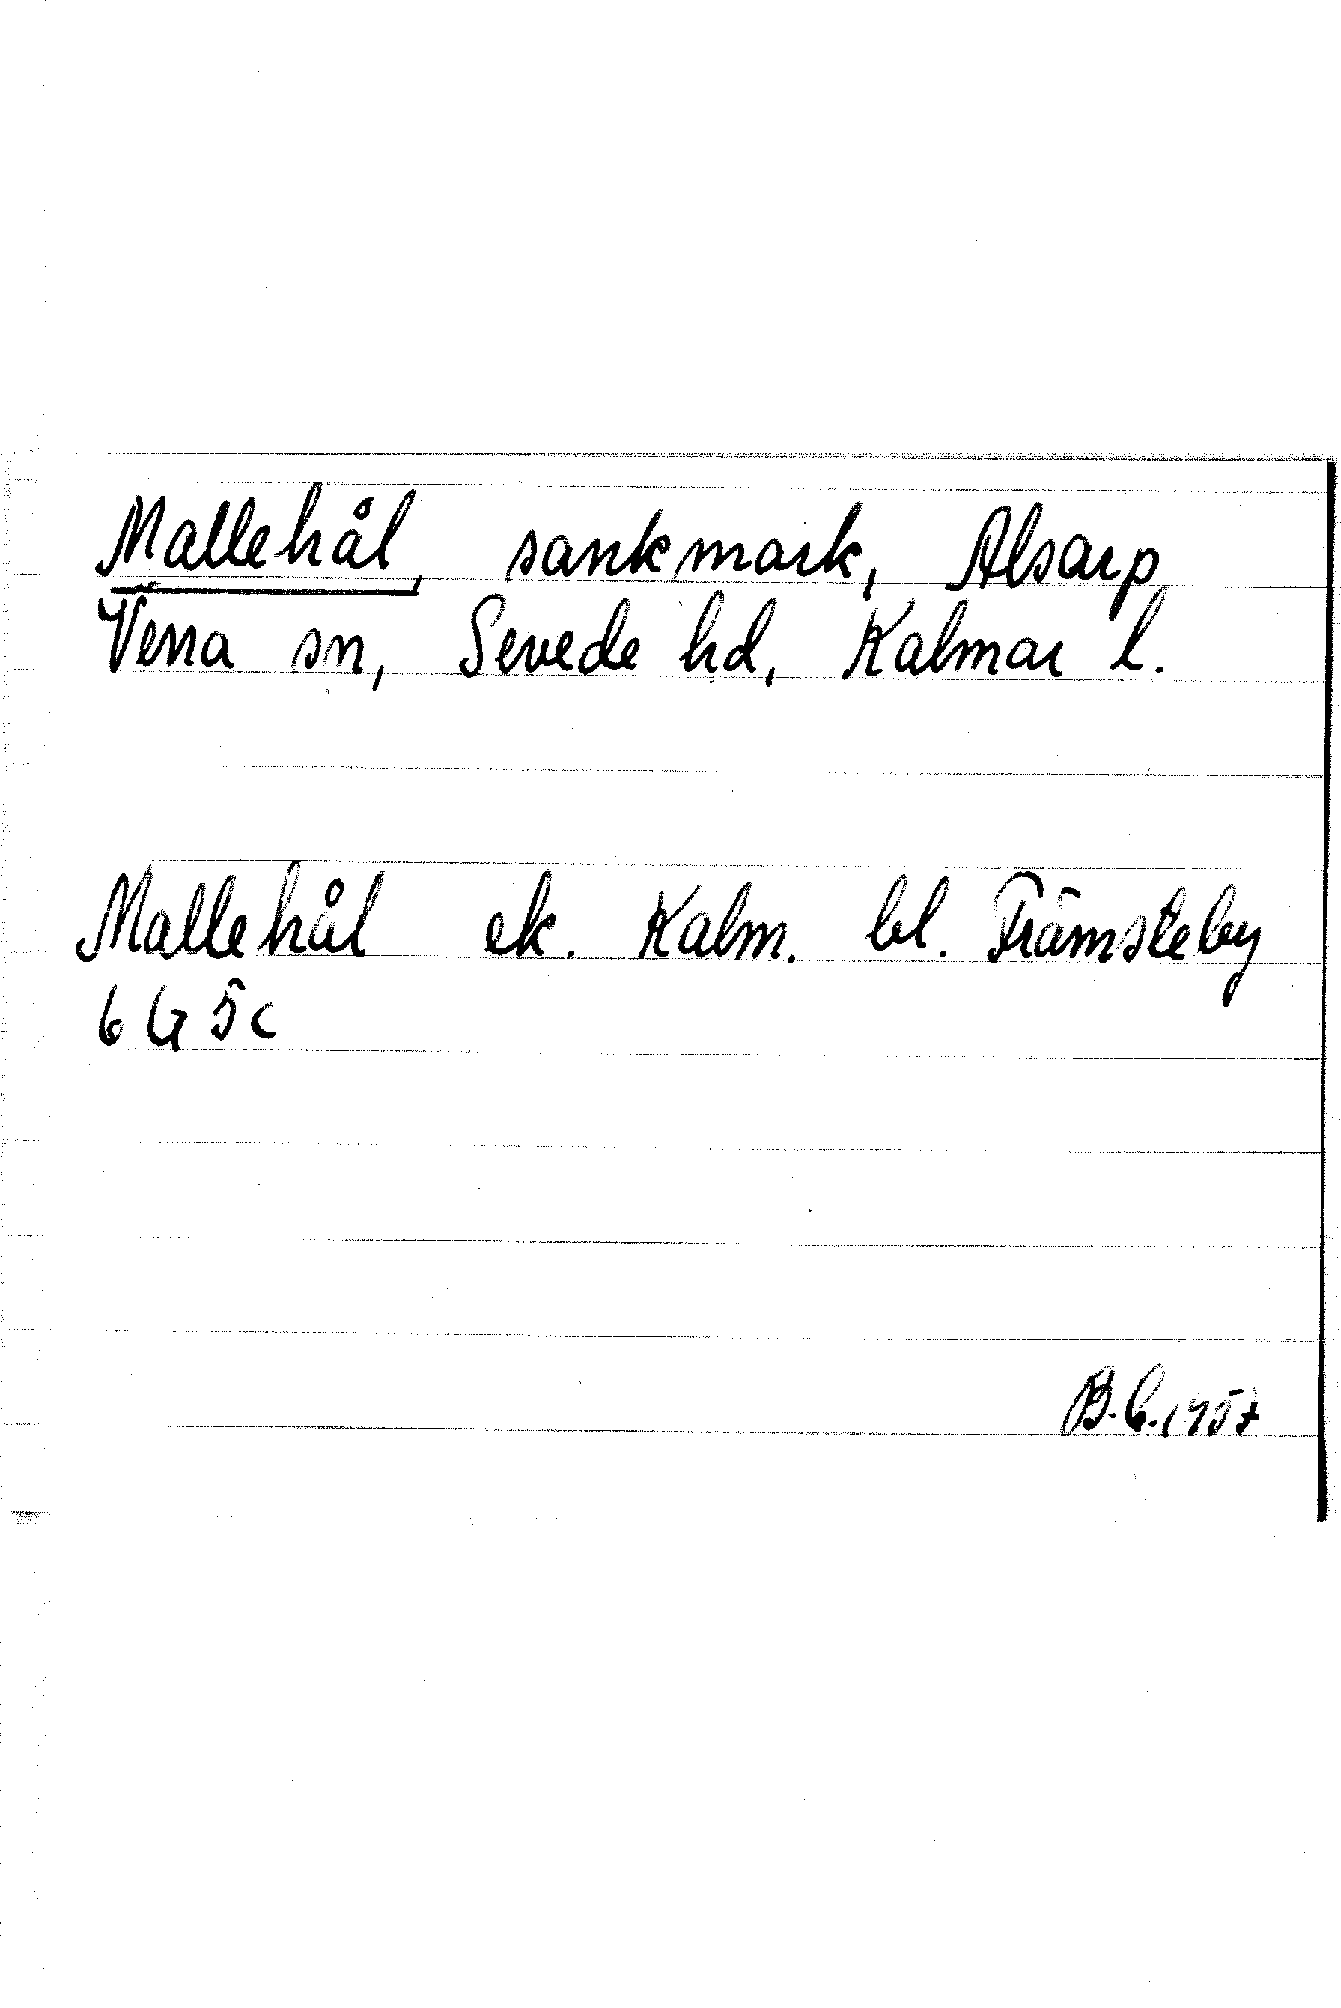 Mallehål, sankmark, Alsarp
Vena sn, Sevede hd, Kalmar l.
Mallehål ek. Kalm. bl. Främsteby
6G5c
B.C.1957